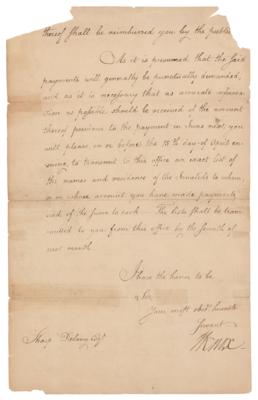 thereof shall be reimbursed you by the public
As it is presumed that the said
payments will generally be punctually demanded,
and as it is necessary that as accurate informa-
tion as possible should be received of the amount
thereof previous to the payment in June next, you
will please, on or before the 15th day of April en-
suing, to transmit to this office an exact list of
the names and residence of the Invalids to whom,
or on whose account, you have made payments
and of the sums to each — The lists shall be trans-
mitted to you from this office by the seventh of
next month.
I have the honor to be
Sir
Your most obedt humble
Servant
HKnox
Sharp Delany Esqr